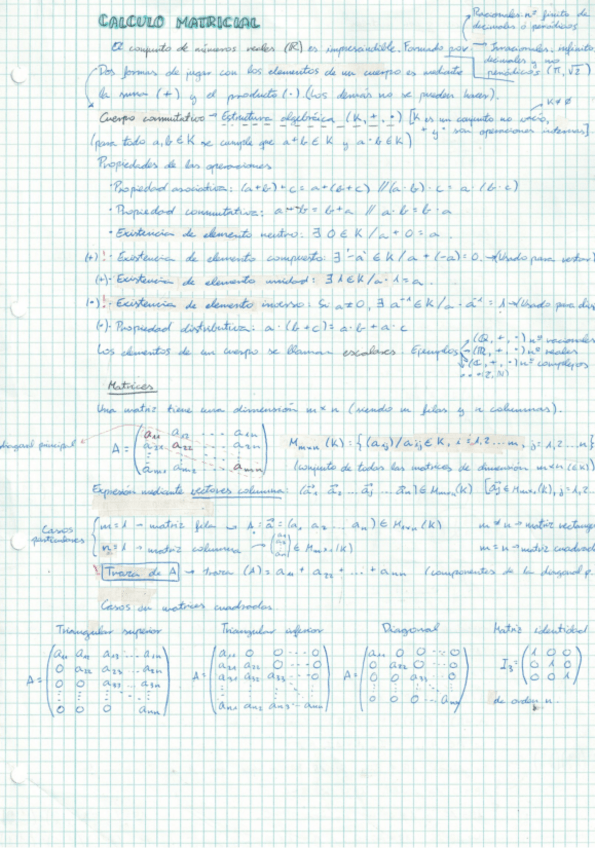 CALCULO MATRICIAL
Racionales: nº finito de
decimales o periódicos
El conjunto de números reales (ℝ) es imprescindible. Formado por
Irracionales, infinitos
decimales y no
periódicos (π, √2)
Dos formas de jugar con los elementos de un cuerpo es mediante
la suma (+) y el producto (·) (Los demás no se pueden hacer).
K ≠ ∅
Cuerpo conmutativo → Estructura algebráica (K, +, ·) [K es un conjunto no vacío,
+ y · son operaciones internas]
(para todo a, b ∈ K se cumple que a+b ∈ K y a·b ∈ K)
Propiedades de las operaciones
· Propiedad asociativa: (a+b)+c = a+(b+c) // (a·b)·c = a·(b·c)
· Propiedad conmutativa: a+b = b+a // a·b = b·a
· Existencia de elemento neutro: ∃ 0 ∈ K / a+0 = a
(+) ! · Existencia de elemento compuesto: ∃ -a ∈ K / a+(-a) = 0 → (Usado para restar)
(·) · Existencia de elemento unidad: ∃ 1 ∈ K / a·1 = a
(·) ! · Existencia de elemento inverso: Si a≠0, ∃ a⁻¹ ∈ K / a·a⁻¹ = 1 → (Usado para div
(·) · Propiedad distributiva: a·(b+c) = a·b + a·c
Los elementos de un cuerpo se llaman escalares. Ejemplos
(ℚ, +, ·) nº racionales
(ℝ, +, ·) nº reales
(ℂ, +, ·) nº complejos
Matrices
Una matriz tiene una dimensión m×n (siendo m filas y n columnas).
diagonal principal
A = (a₁₁ a₁₂ ... a₁ₙ
a₂₁ a₂₂ ... a₂ₙ
aₘ₁ aₘ₂ ... aₘₙ)
Mₘₓₙ (K) = {(aᵢⱼ) / aᵢⱼ ∈ K, i=1,2...m, j=1,2...n}
(conjunto de todas las matrices de dimensión m×n (∈K)
Expresión mediante vectores columna: (a⃗₁ a⃗₂ a⃗ⱼ ... a⃗ₙ) ∈ Mₘₓₙ(K) [a⃗ⱼ ∈ Mₘₓ₁(K), j=1,2...
Casos particulares
m=1 → matriz fila → A = a⃗ = (a₁ a₂ ... aₙ) ∈ M₁ₓₙ (K)
m ≠ n → matriz rectang
n=1 → matriz columna → (a₁ a₂ ⋮ aₘ) ∈ Mₘₓ₁ (K)
m = n → matriz cuadrad
! Traza de A → traza (A) = a₁₁ + a₂₂ + ... + aₙₙ (componentes de la diagonal p.
Casos de matrices cuadradas
Triangular superior Triangular inferior Diagonal Matriz identidad
A = (a₁₁ a₁₂ a₁₃ ... a₁ₙ
0 a₂₂ a₂₃ ... a₂ₙ
0 0 a₃₃ ... a₃ₙ
0 0 0 aₙₙ)
A = (a₁₁ 0 0 ... 0
a₂₁ a₂₂ 0 ... 0
a₃₁ a₃₂ a₃₃ ... 0
aₙ₁ aₙ₂ aₙ₃ ... aₙₙ)
A = (a₁₁ 0 0 ... 0
0 a₂₂ 0 ... 0
0 0 a₃₃ ... 0
0 0 0 ... aₙₙ)
I₃ = (1 0 0
0 1 0
0 0 1)
de orden n.